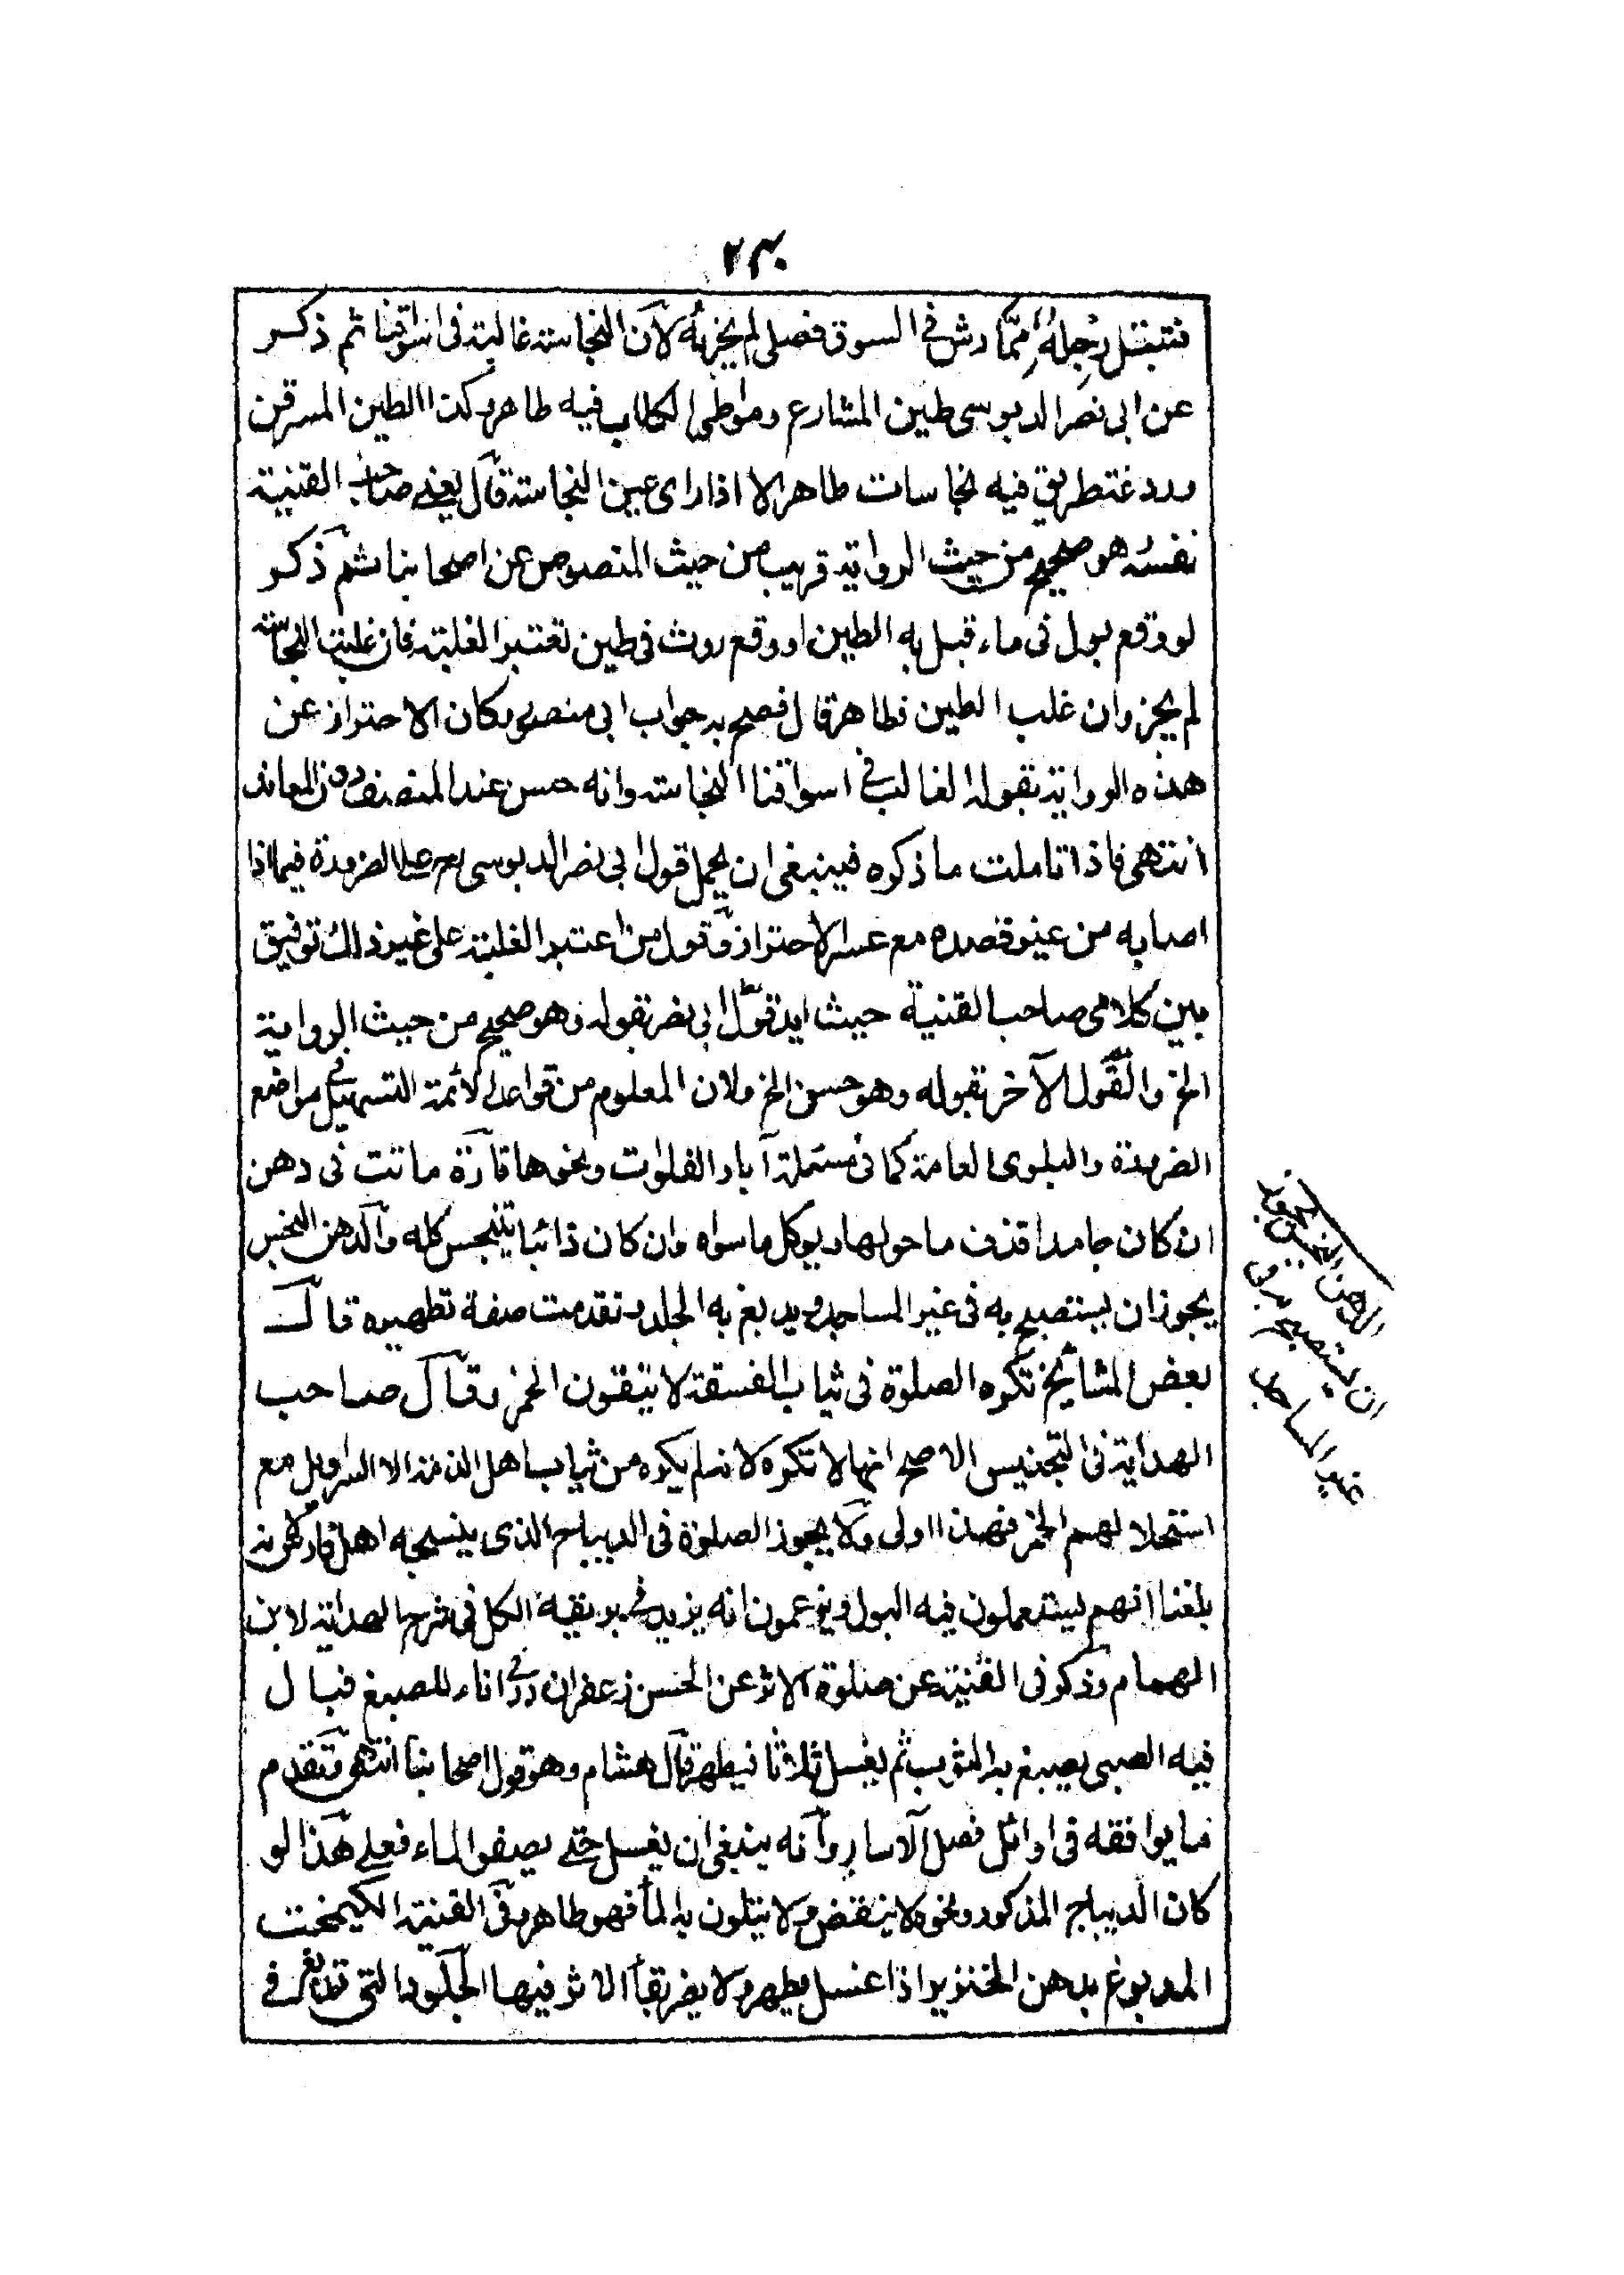 ٢٣٠
فتبتل رجله مما رش في السوق فصلى لم يجزئه لان النجاسة غالبة في اسواقنا ثم ذكر
عن ابي نصر الدبوسي طين المشارع ومواطئ الكلاب فيه طاهر وكذا الطين المسرقن
وردغة طريق فيه نجاسات طاهر الا اذا راى عين النجاسة قال يعني صاحب القنية
نفسه هو صحيح من حيث الرواية قريب من حيث المنصوص عن اصحابنا ثم ذكر
لو وقع بول في ماء قبل به الطين او وقع روث في طين تعتبر الغلبة فان غلبت النجاسة
لم يجز وان غلب الطين فطاهر قال فصح به جواب ابي منصور وكان الاحتراز عن
هذه الرواية بقوله الغالب في اسواقنا النجاسة وانه حسن عند المنصف دون المعاند
انتهى فاذا تاملت ما ذكره فينبغي ان يحمل قول ابي نصر الدبوسي على الضرورة فيما اذا
اصابه من غير قصده مع عسر الاحتراز وقول من اعتبر الغلبة على غير ذلك توفيق
بين كلامي صاحب القنية حيث ايد قول ابي نصر بقوله وهو صحيح من حيث الرواية
الخ والقول الآخر بقوله وهو حسن الخ ولان المعلوم من قواعد الائمة التسهيل في مواضع
الضرورة والبلوى العامة كما في مسئلة آبار الفلوات ونحوها فارة ماتت في دهن
ان كان جامدا قذف ما حولها ويوكل ما سواه وان كان ذائبا يتنجس كله والدهن النجس
يجوز ان يستصبح به في غير المساجد ويدبغ به الجلد وتقدمت صفة تطهيره قال
بعض المشايخ تكره الصلوة في ثياب الفسقة لا يتقون الخمر وقال صاحب
الهداية في التجنيس الاصح انها لا تكره لانه لم يكره من ثياب اهل الذمة الا السراويل مع
استحلالهم الخمر فهذا اولى ولا يجوز الصلوة في الديباج الذي ينسجه اهل فارس لانه
بلغنا انهم يستعملون فيه البول ويزعمون انه يزيد في بريقه الكل في شرح الهداية لابن
الهمام وذكر في القنية عن صلوة الاثر عن الحسن زعفران در في اناء للصبغ فبال
فيه الصبي يصبغ به الثوب ثم يغسل ثلاثا فيطهر قال هشام وهو قول اصحابنا انتهى وتقدم
ما يوافقه في اوائل فصل الآسار وانه ينبغي ان يغسل حتى يصفو الماء فعلى هذا لو
كان الديباج المذكور ونحوه لا ينقض ولا يتلون به الماء فهو طاهر وفي القنية الكيمخت
المدبوغ بدهن الخنزير اذا غسل يطهر ولا يضر بقاء الاثر فيها الجلود التي تدبغ في
الدهن النجس يجوز
ان يستصبح به في
غير المساجد